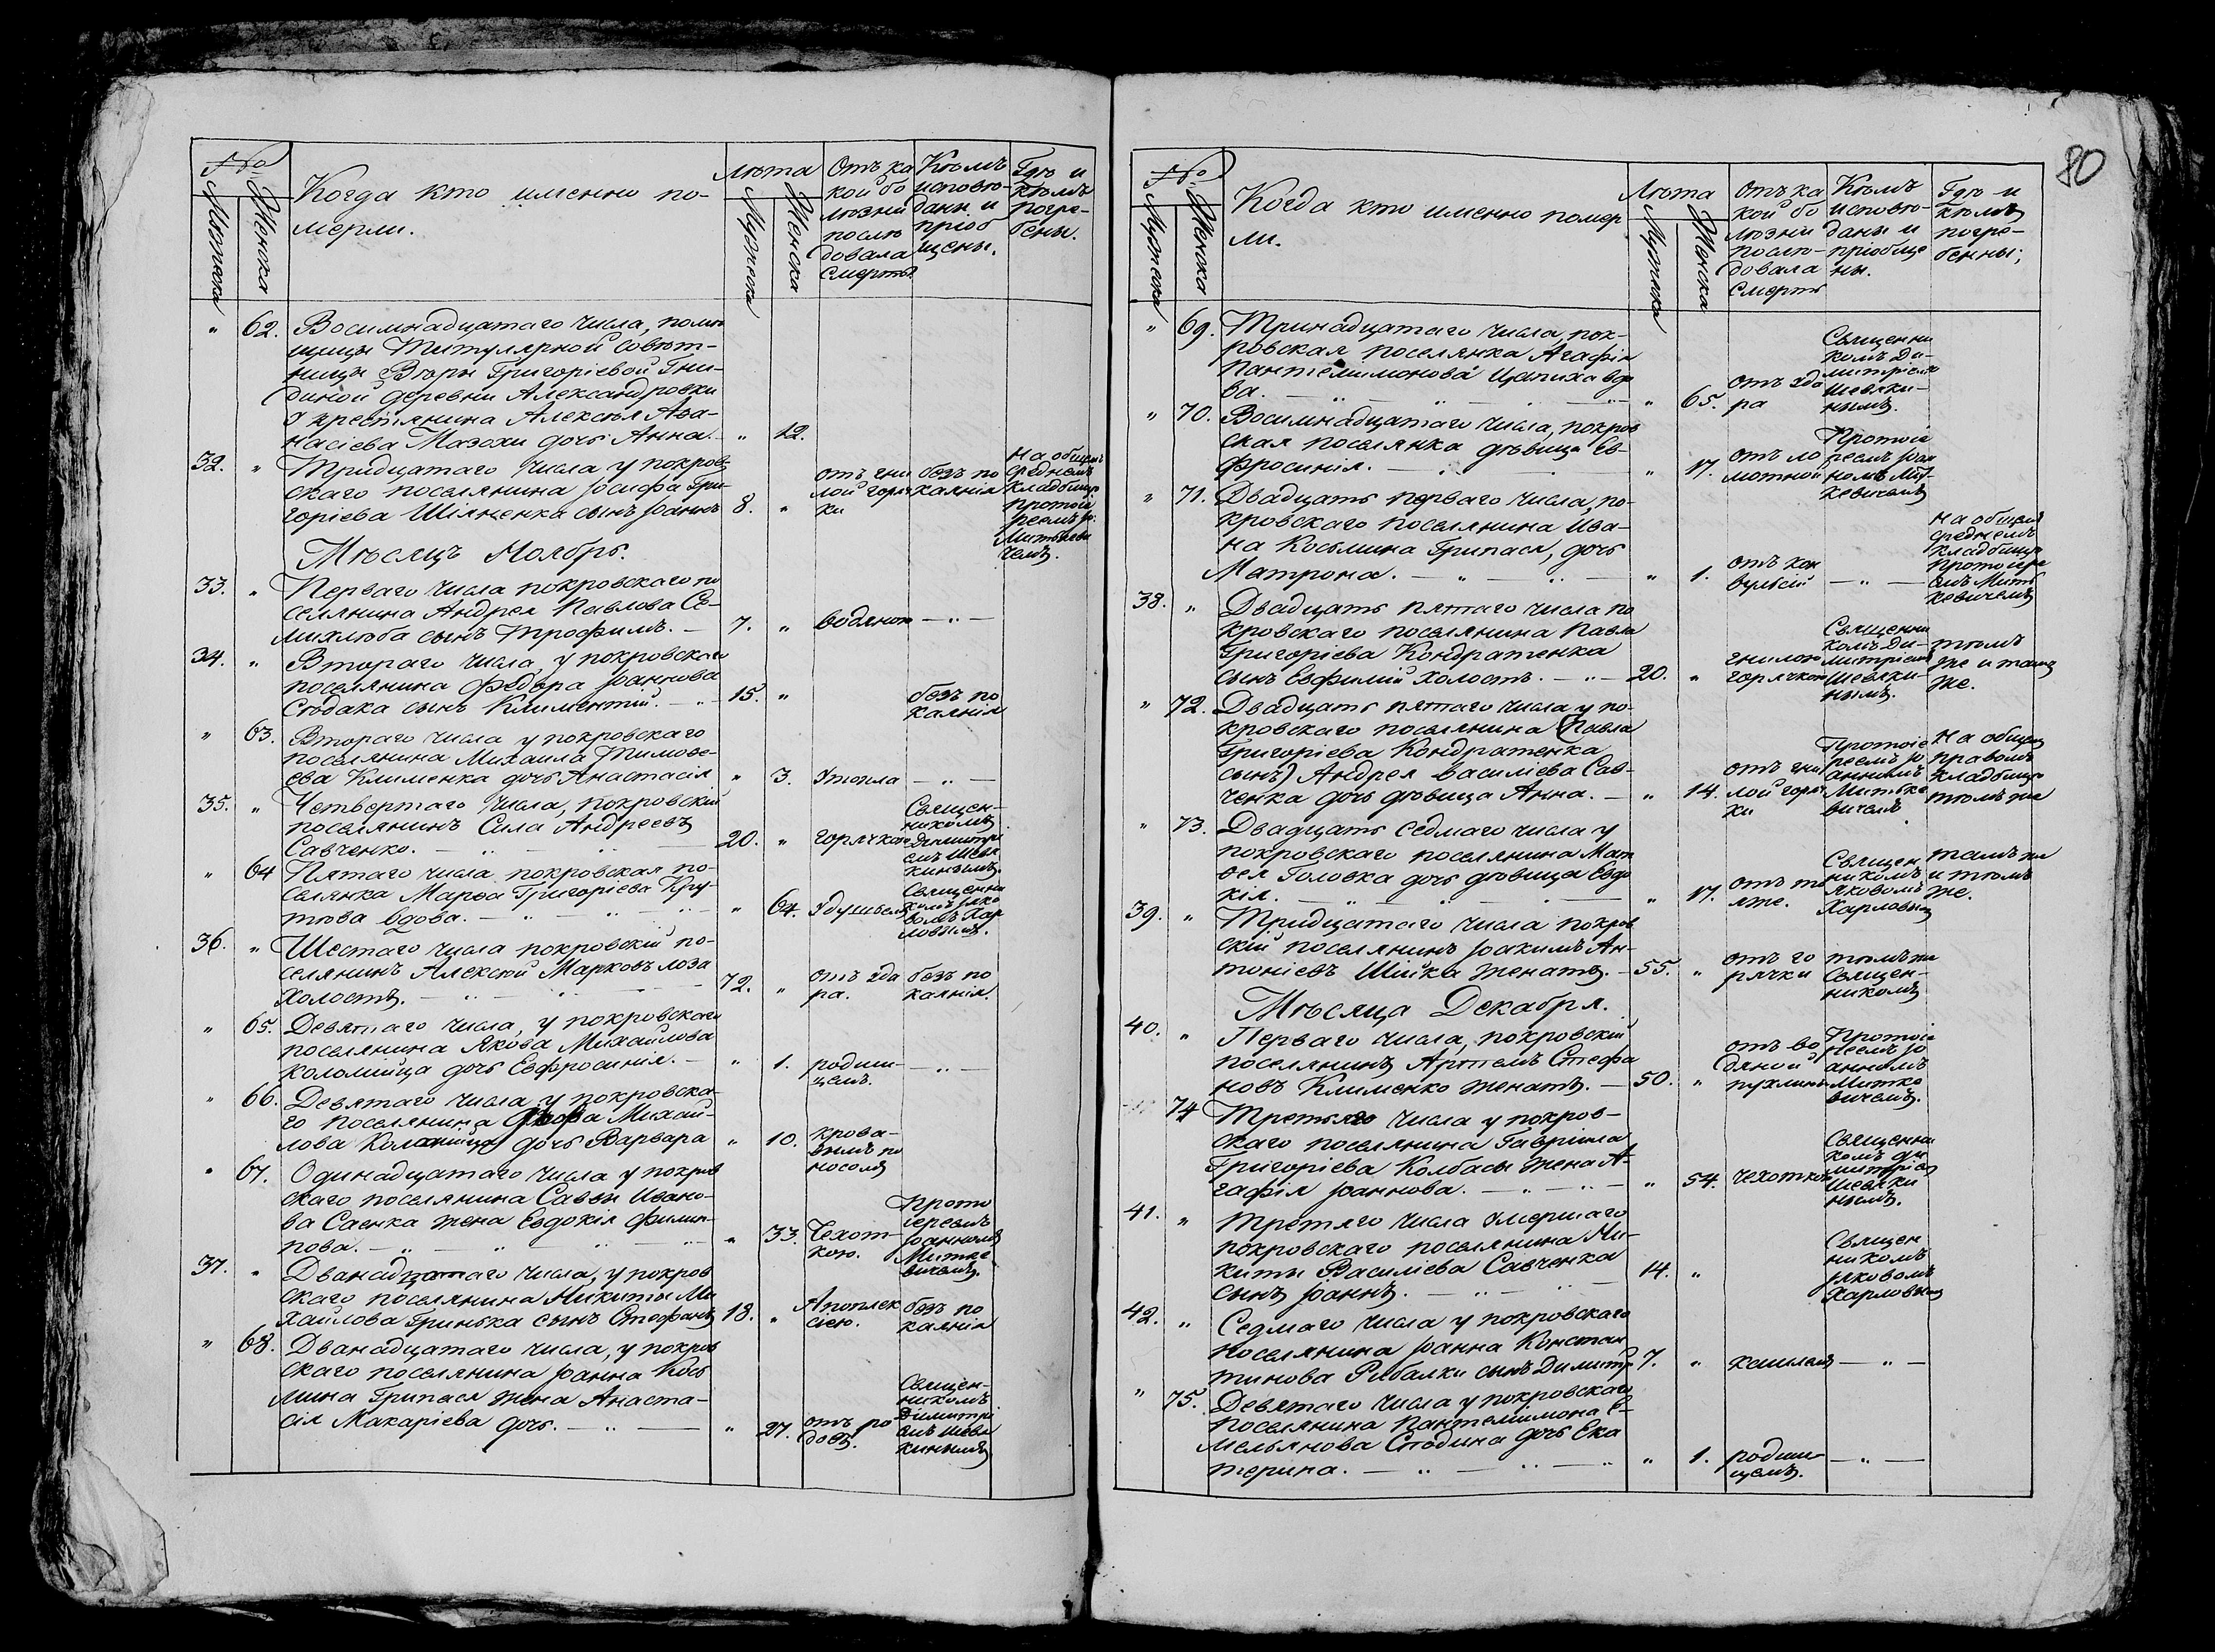 №
Мужеска
Женска
Когда кто именно по-
мерли.
Лѣта
Мужеска
Женска
Отъ ка
кой бо
лѣзни
послѣ
довала
смерть
Кѣмъ
исповѣ-
даны и
пріоб
щены.
Гдѣ и
кѣмъ
погре-
бены.
" 62. Восимнадцатаго числа, помѣ
щицы Титулярной Совѣт-
ницы Вѣры Григоріевой Гни-
диной деревни Александровки
у крестьянина Алексѣя Аѳа-
насіева Мазохи дочь Анна. " 12.
32. " Тридцатаго числа у покров
скаго поселянина Іосифа Гри-
горіева Шіяненка сынъ Іоаннъ 8. "
отъ гни
лой горяч
ки
безъ по
каянія
На общемъ
среднемъ
кладбищѣ
протоіе
реемъ Іо.
Митькеви
чемъ.
Мѣсяцъ Ноябрь.
33. " Перваго числа покровскаго по
селянина Андрея Павлова Се-
михлѣба сынъ Трофимъ. — 7. " водяною — " —
34. " Втораго числа, у покровскаго
поселянина Федора Іоаннова
Слюбака сынъ Климентій. — " — 15. "
безъ по
каянія
" 63. Втораго числа у покровскаго
поселянина Михаила Тимоѳе-
ева Клименка дочь Анастасія " 3. Утопла — " —
35. " Четвертаго числа, покровскій
поселянинъ Сила Андреевъ
Савченко. — " — " — 20. " горячкою
Священ-
никомъ
Димитрі
емъ Шевя
кинымъ.
" 64 Пятаго числа покровская по-
селянка Марѳа Григоріева Кру-
това вдова. — " — " — " 64. Удушьемъ
Священни
комъ Яко
вомъ Хар
ловымъ.
36. " Шестаго числа покровскій по-
селянинъ Алексѣй Марковъ Лоза
холостъ. — " — " — 72. "
отъ уда
ра.
безъ по
каянія.
" 65. Девятаго числа, у покровскаго
поселянина Якова Михайлова
Коломійца дочь Евфросинія. — " 1.
родим-
цемъ. — " —
" 66. Девятаго числа у покровска-
го поселянина Михай-
лова Коломійца дочь Варвара " 10.
крова-
вымъ по
носомъ
" 67. Одинадцатаго числа у покров
скаго поселянина Саввы Ивано-
ва Саенка жена Евдокія Филип-
пова. — " — " — " — " 33.
Чехот-
кою.
Прото
іереемъ
Іоанномъ
Митке
вичемъ.
37. " Дванадцатаго числа, у покров
скаго поселянина Никиты Ми
хайлова Гринька сынъ Стефанъ 18. "
Апоплек
сіею.
безъ по
каянія
" 68. Дванадцатаго числа, у покров
скаго поселянина Іоанна Кось
мина Грипася жена Анаста-
сія Макаріева дочь. — " — " 27.
отъ ро
довъ.
Священ-
никомъ
Димитрі
емъ Шевя
кинымъ
80
№
Мужеска
Женска
Когда кто именно помер
ли.
Лѣта
Мужеска
Женска
Отъ ка
кой бо
лѣзни
послѣ-
довала
смерть
Кѣмъ
исповѣ-
даны и
пріобще
ны.
Гдѣ и
кѣмъ
погре-
бенны;
" 69. Тринадцатаго числа, пок-
ровская поселянка Агафія
Пантелимонова Цапиха вдо
ва. — " — " — " 65.
отъ уда
ра
Священни
комъ Ди-
митріемъ
Шевяки-
нымъ.
" 70. Восимнадцатаго числа, покров
ская поселянка дѣвица Ев-
фросинія. — " — " 17.
отъ ло
мотной
Протоіе
реемъ Іоан
номъ Мит-
кевичемъ
" 71. Двадцать перваго числа, по-
кровскаго поселянина Ива-
на Косьмина Грипася, дочь
Матрона. — " — " — " 1.
отъ кон
вульсій — " —
На общемъ
среднемъ
кладбищѣ
протоіере
емъ Мить
кевичемъ
38. " Двадцать пятаго числа по
кровскаго поселянина Павла
Григоріева Кондратенка
сынъ Евфимій холостъ. — " — 20. "
гнилою
горячкою
Священни
комъ Ди-
митріемъ
Шевяки-
нымъ.
тѣмъ
же и тамъ
же.
" 72. Двадцать пятаго числа у по-
кровскаго поселянина (Павла
Григоріева Кондратенка
сынъ) Андрея Василіева Сав-
ченка дочь дѣвица Анна. — " 14.
отъ гни
лой горяч
ки
Протоіе
реемъ Іо
анномъ
Митьке
вичемъ
На общемъ
правомъ
кладбищѣ
тѣмъ же
" 73. Двадцать седмаго числа у
покровскаго поселянина Мат
ѳея Головка дочь дѣвица Евдо
кія. — " — " — " 17.
отъ то
яже.
Священ
никомъ
Яковомъ
Харловымъ
тамъ же
и тѣмъ
же.
39. " Тридцатаго числа покров
скій поселянинъ Іоакимъ Ан-
тоніевъ Шійка женатъ. — 55. "
отъ го
рячки
тѣмъ же
Священ-
никомъ
Мѣсяца Декабря.
40. " Перваго числа, покровскій
поселянинъ Артемъ Стефа
новъ Клименко женатъ. — 50. "
отъ во
дяной
пухлины
Протоіе
реемъ Іо
анномъ
Митке
вичемъ.
74 Третьяго числа у покров-
скаго поселянина Гавріила
Григоріева Колбасы жена А-
гафія Іоаннова. — " — " 54. чехоткою
Священни
комъ Ди
митріемъ
Шевяки
нымъ.
41. " Третяго числа умершаго
покровскаго поселянина Ни-
киты Василіева Савченка
сынъ Іоаннъ. — " — " — 14. "
Священ
никомъ
Яковомъ
Харловымъ
42. " Седмаго числа у покровскаго
поселянина Іоанна Констан
тинова Рибалки сынъ Димитр 7. " кашлемъ — " —
" 75. Девятаго числа у покровскаго
поселянина Пантелимона Е-
мельянова Слюдина дочь Ека
терина. — " — " — " 1.
родим-
цемъ. — " —